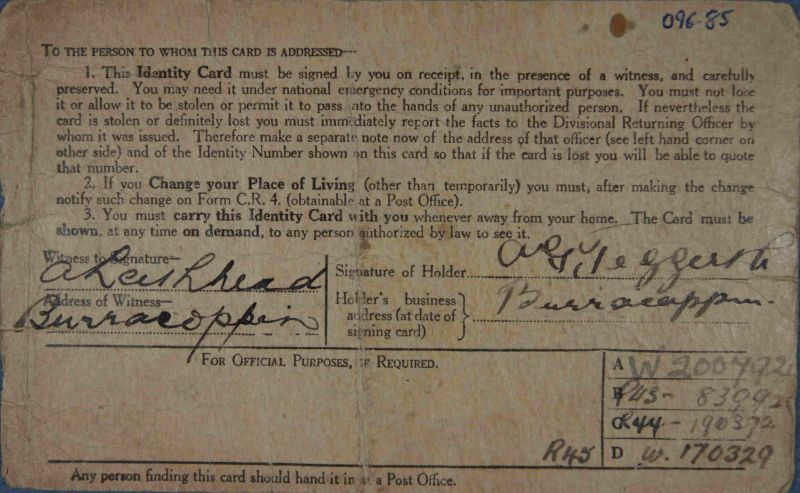 096-85
TO THE PERSON TO WHOM THIS CARD IS ADDRESSED—
1. This Identity Card must be signed by you on receipt, in the presence of a witness, and carefully
preserved. You may need it under national emergency conditions for important purposes. You must not lose
it or allow it to be stolen or permit it to pass into the hands of any unauthorized person. If nevertheless the
card is stolen or definitely lost you must immediately report the facts to the Divisional Returning Officer by
whom it was issued. Therefore make a separate note now of the address of that officer (see left hand corner on
other side) and of the Identity Number shown on this card so that if the card is lost you will be able to quote
that number.
2. If you Change your Place of Living (other than temporarily) you must, after making the change
notify such change on Form C.R. 4. (obtainable at a Post Office).
3. You must carry this Identity Card with you whenever away from your home. The Card must be
shown, at any time on demand, to any person authorized by law to see it.
Witness to Signature—
A Leishhead
Signature of Holder
Address of Witness—
Burracoppin
Holder's business
address (at date of
signing card)
Burracoppin.
FOR OFFICIAL PURPOSES, IF REQUIRED.
A W 200492
B R43- 83992
C R44- 190372
R45 D W. 170329
Any person finding this card should hand it in at a Post Office.